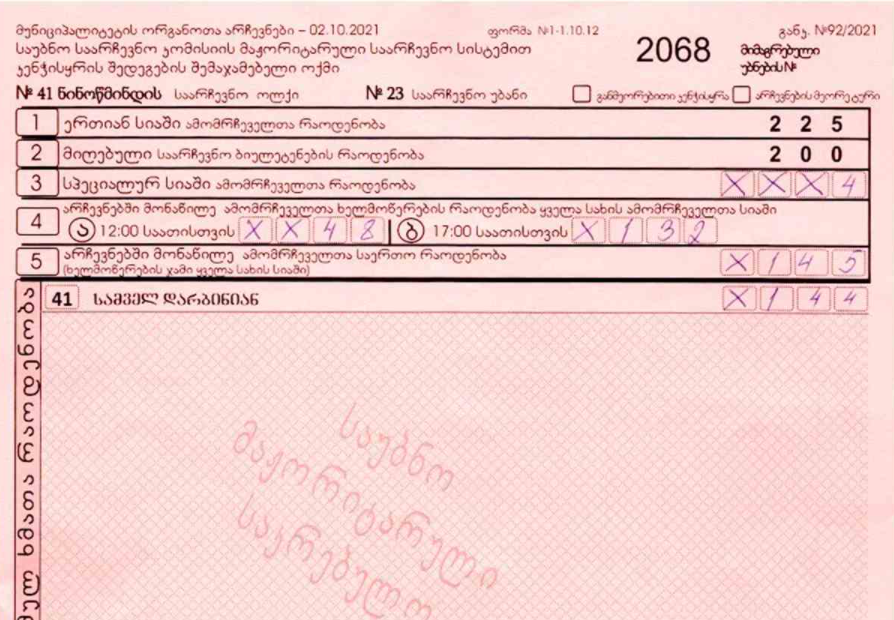 მუნიციპალიტეტის ორგანოთა არჩევნები – 02.10.2021 ფორმა №1-1.10.12 განკ. №92/2021
საუბნო საარჩევნო კომისიის მაჟორიტარული საარჩევნო სისტემით 2068 მიმაგრებული
კენჭისყრის შედეგების შემაჯამებელი ოქმი უბნების №
№ 41 ნინოწმინდის საარჩევნო ოლქი № 23 საარჩევნო უბანი განმეორებითი კენჭისყრა არჩევნების მეორე ტური
1 ერთიან სიაში ამომრჩეველთა რაოდენობა 2 2 5
2 მიღებული საარჩევნო ბიულეტენების რაოდენობა 2 0 0
3 სპეციალურ სიაში ამომრჩეველთა რაოდენობა X X X 4
4 არჩევნებში მონაწილე ამომრჩეველთა ხელმოწერების რაოდენობა ყველა სახის ამომრჩეველთა სიაში
ა 12:00 საათისთვის X X 4 8 ბ 17:00 საათისთვის X 1 3 2
5 არჩევნებში მონაწილე ამომრჩეველთა საერთო რაოდენობა X 1 4 5
(ხელმოწერების ჯამი ყველა სახის სიაში)
41 სამველ დარბინიან X 1 4 4
ხმათა რაოდენობა
საუბნო
მაჟორიტარული
საკრებულო